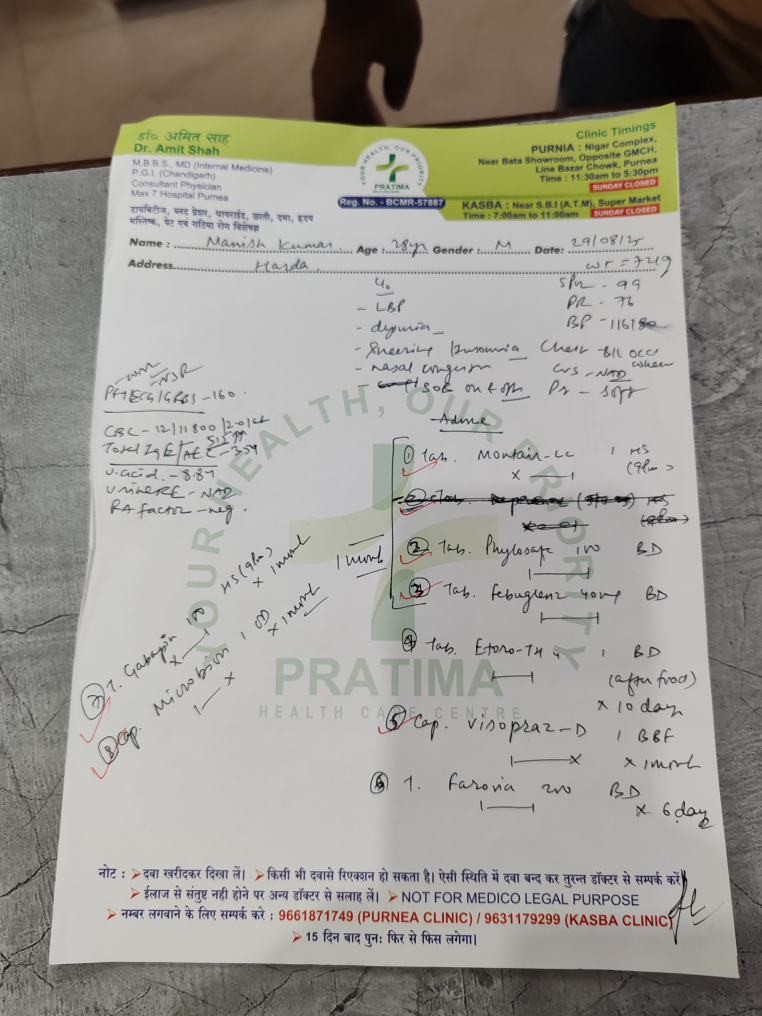 डॉ० अमित साह
Dr. Amit Shah
M.B.B.S., MD (Internal Medicine)
P.G.I. (Chandigarh)
Consultant Physician
Max 7 Hospital Purnea
डायबिटीज, ब्लड प्रेशर, थायराईड, छाती, दमा, हृदय
मस्तिष्क, पेट एवं गठिया रोग विशेषज्ञ
YOUR HEALTH, OUR PRIORITY
PRATIMA
Reg. No. - BCMR-57887
Clinic Timings
PURNIA : Nigar Complex,
Near Bata Showroom, Opposite GMCH,
Line Bazar Chowk, Purnea
Time : 11:30am to 5:30pm
SUNDAY CLOSED
KASBA : Near S.B.I (A.T.M), Super Market
Time : 7:00am to 11:00am SUNDAY CLOSED
Name : Manish Kumar Age : 28yr Gender : M Date: 29/08/25
Address Harda
- LBP
PR - 76
- dysuria
BP - 116/80
- nasal congestion
CVS - NAD
P/A - soft
CBC - 12/11800/
Total IgE/AEC
U.acid - 8.87
Urine RE - NAD
RA factor - neg.
Advice
① Tab. Montair-LC 1 HS
(9pm)
② Tab. 100 BD
1 month
③ Tab. 40mg BD
④ Tab. Etoro-TH 4 1 BD
(after food)
x 10 day
⑤ Cap. Visopraz-D 1 BBF
x 1 month
⑥ T. Farovia 200 BD
x 6 day
⑦ T. Gabapin 100 HS (9pm)
x 1 month
⑧ Cap. 1 OD
x 1 month
YOUR HEALTH, OUR PRIORITY
PRATIMA
HEALTH CARE CENTRE
नोट : ➤ दवा खरीदकर दिखा लें। ➤ किसी भी दवासे रिएक्शन हो सकता है। ऐसी स्थिति में दवा बन्द कर तुरन्त डॉक्टर से सम्पर्क करें
➤ ईलाज से संतुष्ट नही होने पर अन्य डॉक्टर से सलाह लें। ➤ NOT FOR MEDICO LEGAL PURPOSE
➤ नम्बर लगवाने के लिए सम्पर्क करे : 9661871749 (PURNEA CLINIC) / 9631179299 (KASBA CLINIC)
➤ 15 दिन बाद पुन: फिर से फिस लगेगा।